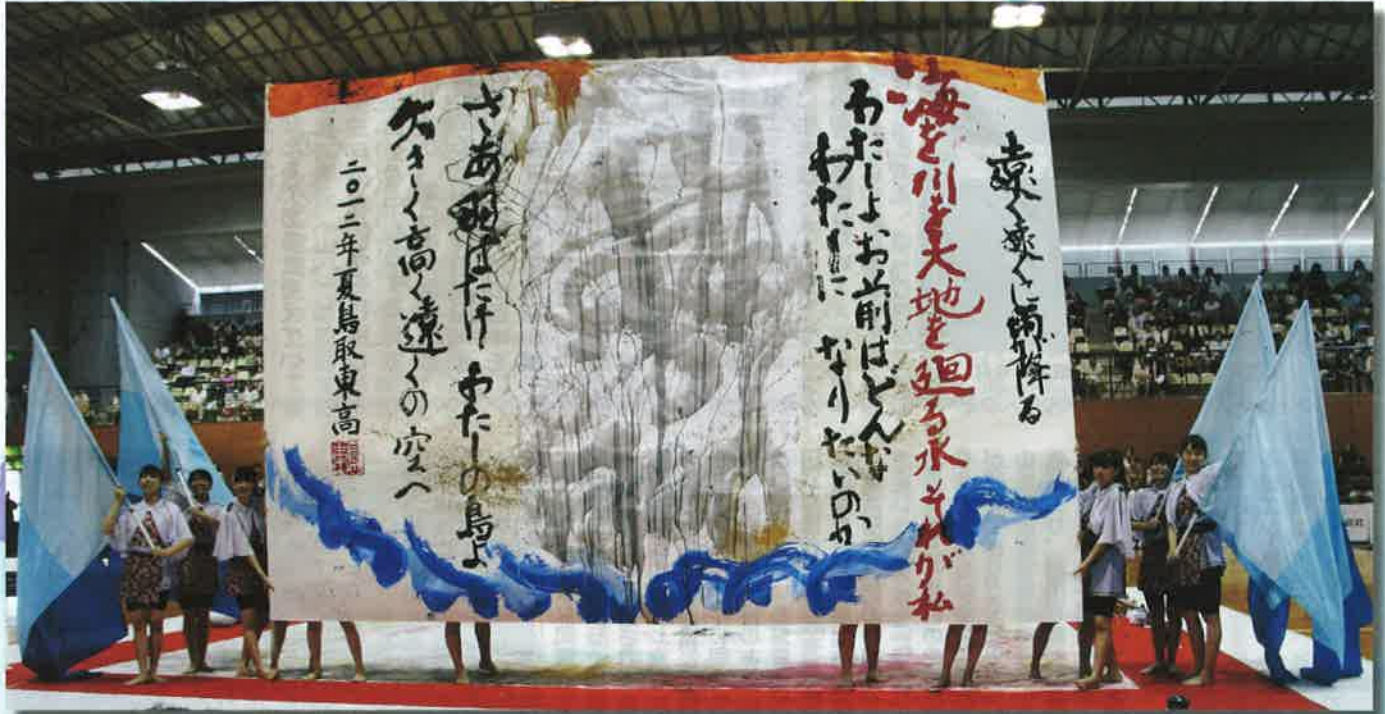 遠く 降る
海を川を大地を廻る水 それが私
わたしよお前はどんな
わたしに なりたいのか
さあ羽ばたけ わたしの鳥よ
大きく高く遠くの空へ
二〇一二年夏鳥取東高